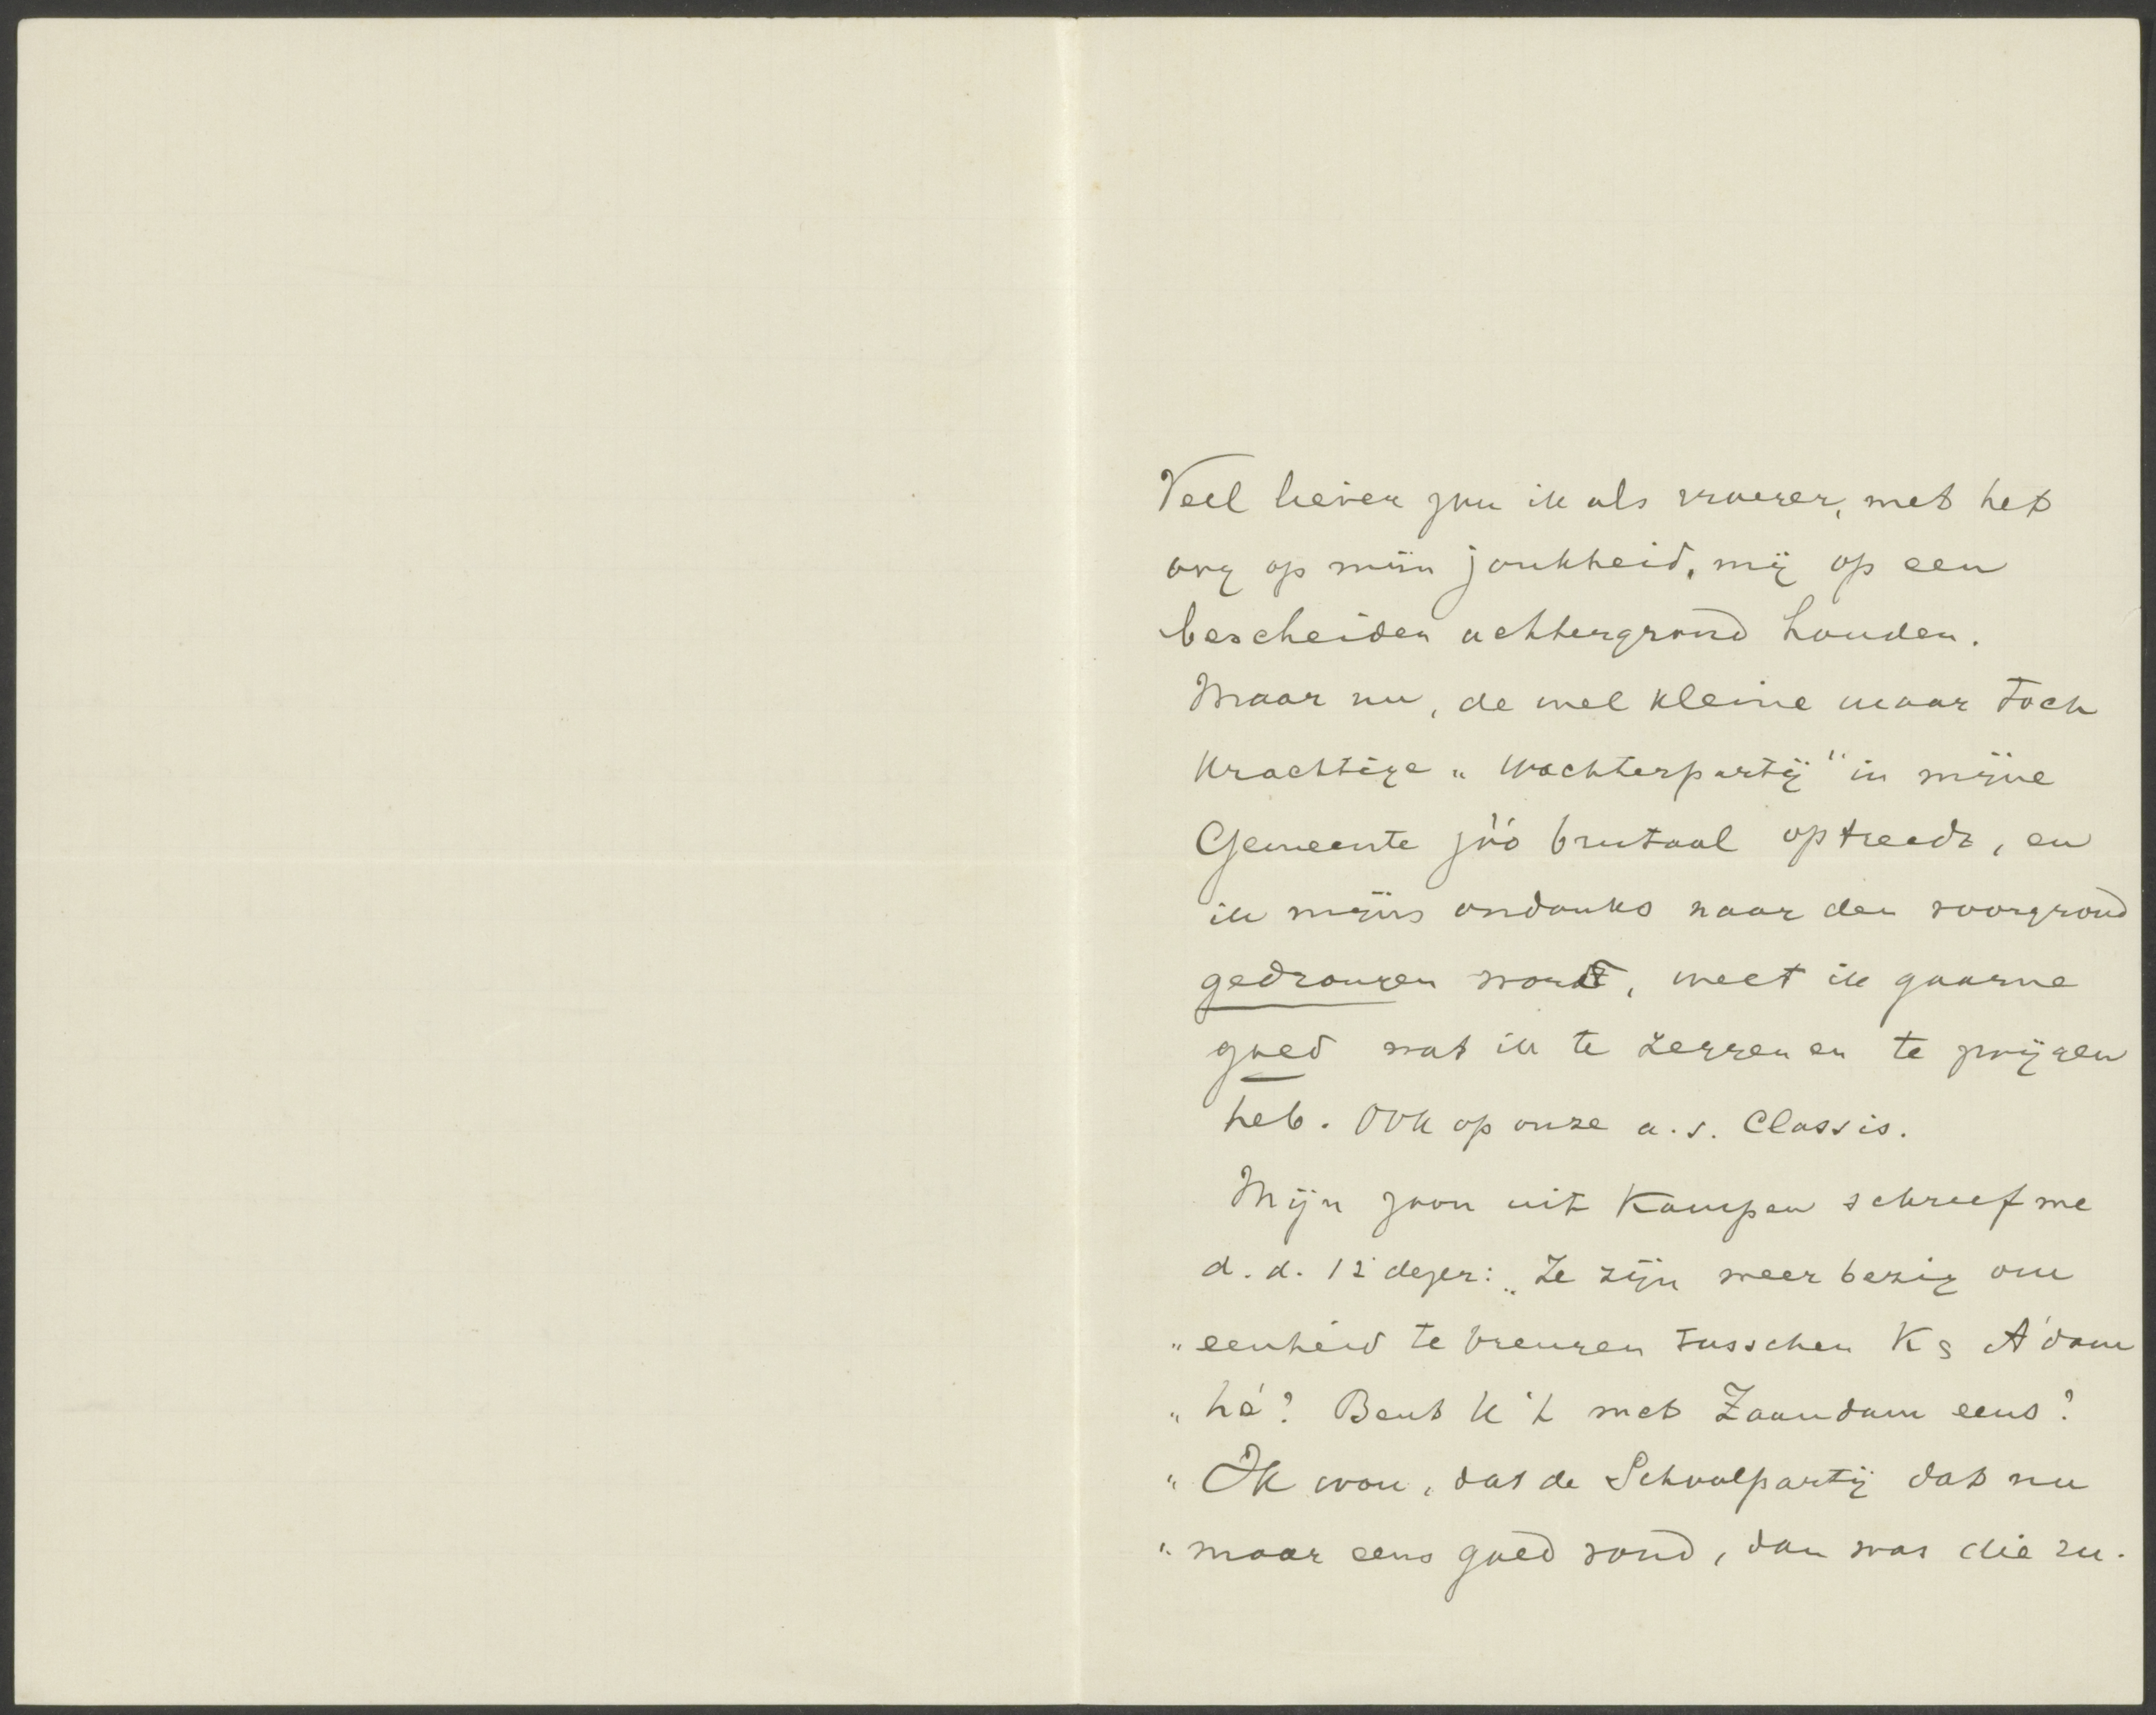 Veel liever zou ik als vroeger, met het
oog op mijn jonkheid, mij op een
bescheiden achtergrond houden.
Maar nu, de wel kleine maar toch
krachtige „Wachterpartij" in mijne
Gemeente zóó brutaal optreedt, en
ik mijns ondanks naar den voorgrond
gedrongen wordt, weet ik gaarne
goed wat ik te zeggen en te zwijgen
heb. Ook op onze a.s. Classis.
Mijn zoon uit Kampen schreef me
d.d. 12 dezer: „Ze zijn weer bezig om
„eenheid te brengen tusschen K & A'dam
„hè? Bent U 't met Zaandam eens?
„Ik wou, dat de Schoolpartij dat nu
„maar eens goed vond, dan was die ru-